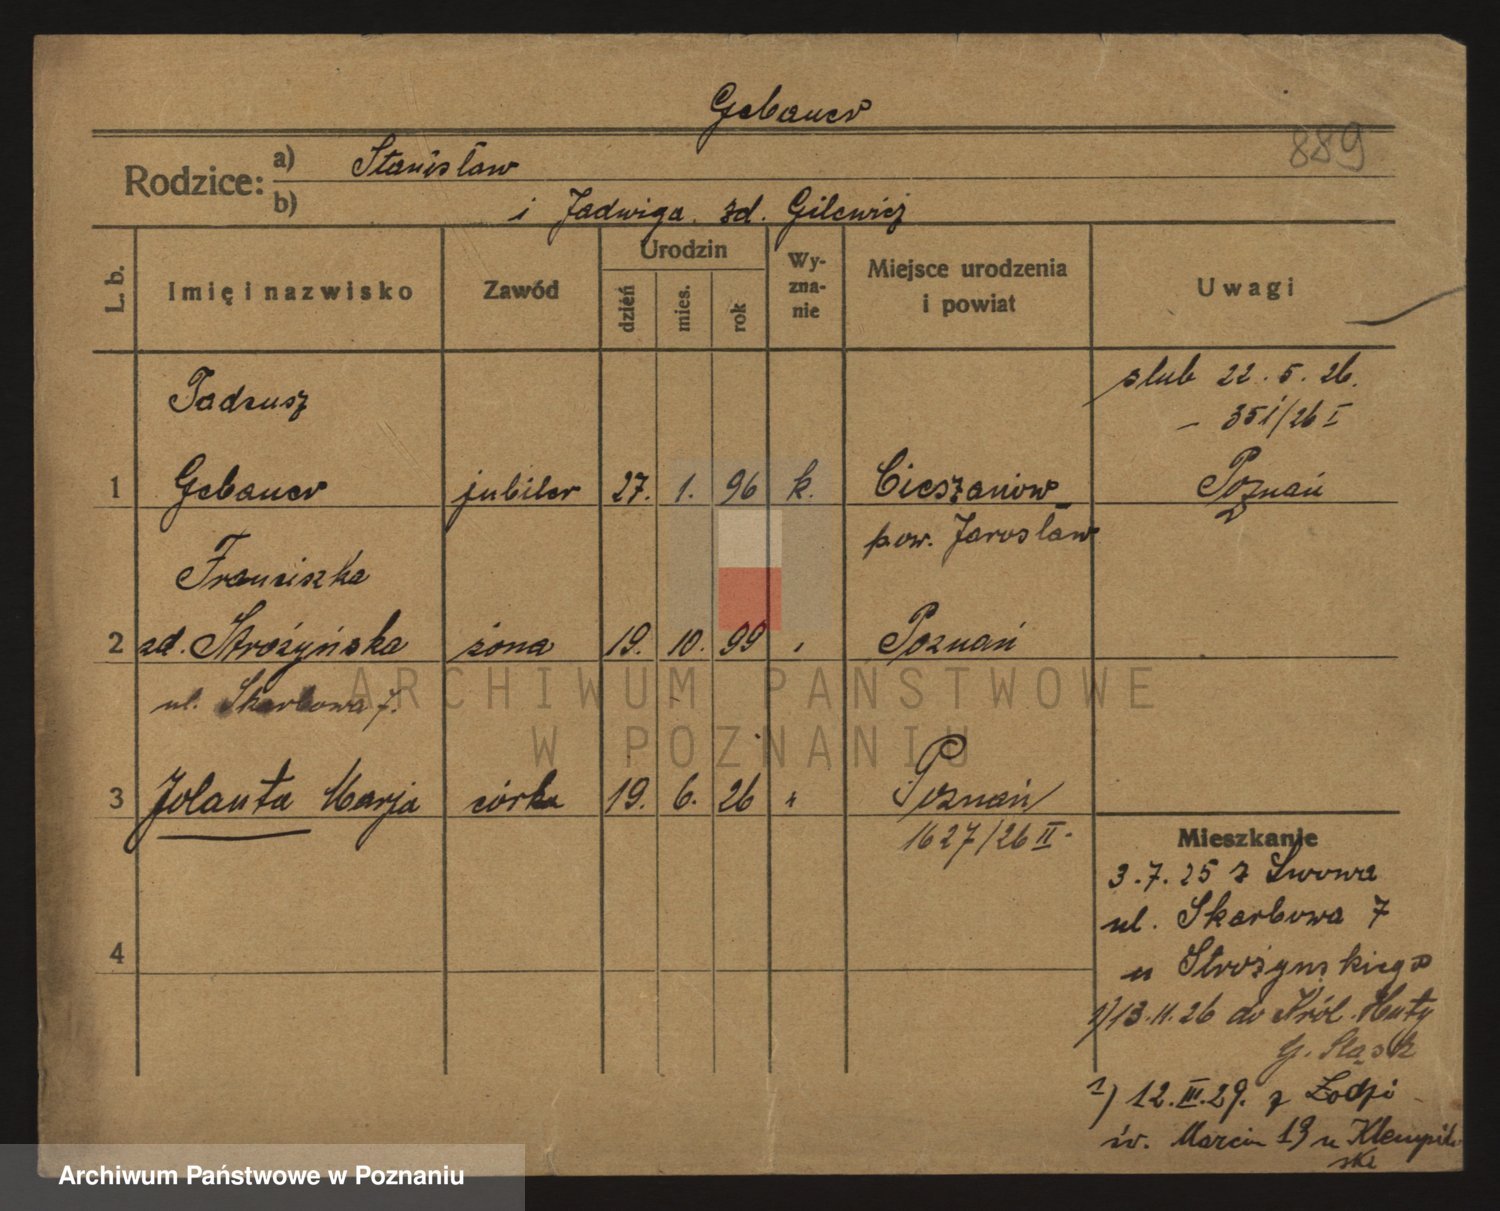 Gebauer
889
Rodzice: a) Stanisław
b) i Jadwiga zd. Gilewicz
L. b. Imię i nazwisko Zawód Urodzin dzień mies. rok Wyznanie Miejsce urodzenia i powiat Uwagi
Tadeusz ślub 22.5.26.
– 351/26 I
1 Gebauer jubiler 27. 1. 96 k. Cieszanów Poznań
pow. Jarosław
Franciszka
2 zd. Strożyńska żona 19. 10. 99 " Poznań
ul. Skarbowa 7.
3 Jolanta Marja córka 19. 6. 26 " Poznań
1627/26 II
4
Mieszkanie
3.7.25 z Lwowa
ul. Skarbowa 7
u Strożynskiego
1) 13.11.26 do Król. Huty
G. Śląsk
1) 12.III.29. z Łodzi
św. Marcin 19 u
ARCHIWUM PAŃSTWOWE
W POZNANIU
Archiwum Państwowe w Poznaniu